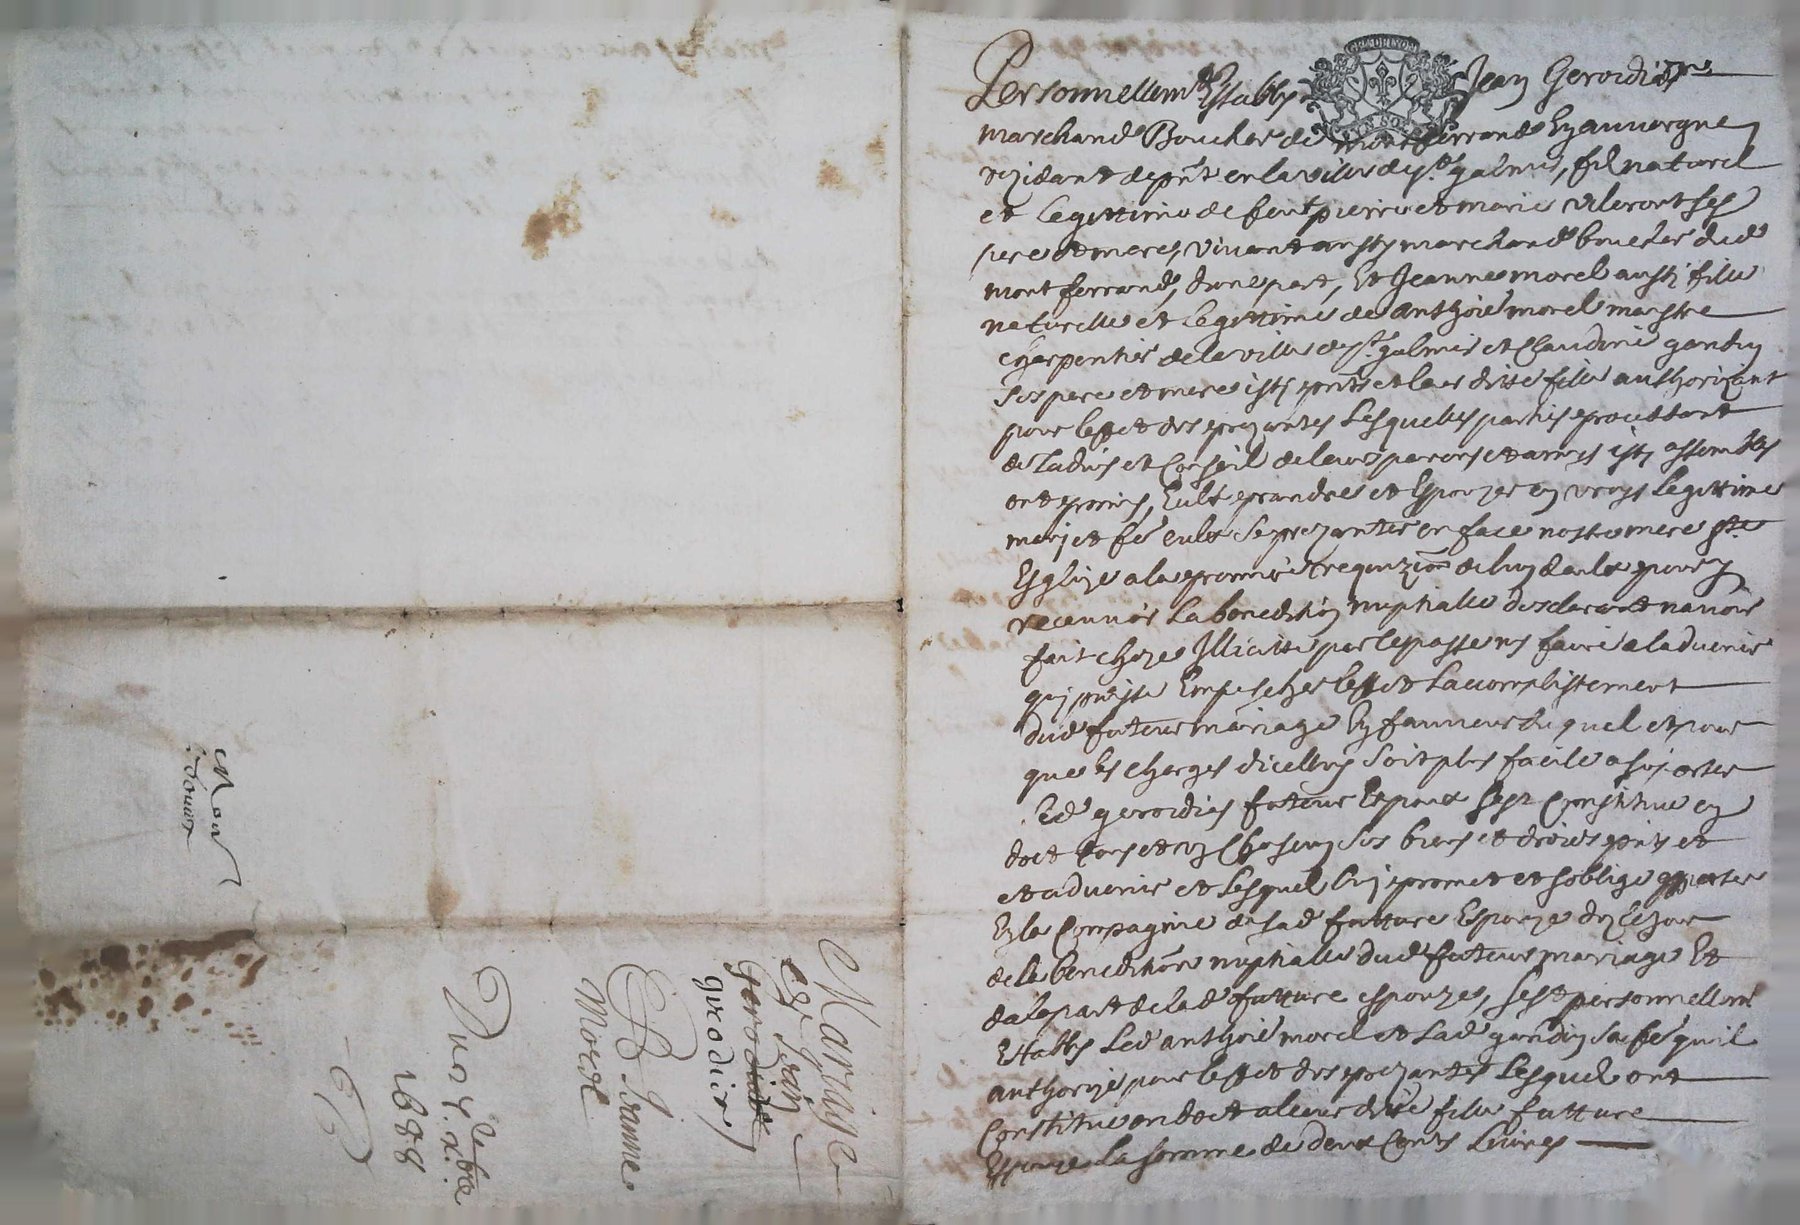 Personnellemt Establys Jean Gerodias
marchand Boucher de montferrand En auvergne
rezidant de pnt en la ville de st galmier, fil naturel
et legittime de feut pierre et marie vileront ses
pere et mere, vivant aussy marchand boucher dud
montferrand, d'une part, Et Jeanne morel aussi fille
naturelle et legittime de anthoine morel maistre
charpentier de la ville de st galmier et Claudine gondin
ses pere et mere isy pnts et leur ditte fille authorizant
pour leffet des prezantes Lesquelles parties procettant
de ladvis et Conseil de leurs parens et amys isy assembles
ont promis, Eulx prandre et Espouzer en vrays legittime
mary et fe eulx se prezanter en face nostre mere ste
Esglize a la premiere requizion de lung daulx pour y
recevvoir La benediction nuptialle desclarant navoir
fait choze Illicitte par le passe ny faire a ladvenir
qui puisse Empescher leffet Lacomplissement
dud futeur mariage En faveur du quel et pour
que les charges dicelluy soit plus facille a suporter
Led gerodias futeur Espoux sest Constitue en
doct tous et un Chascung ses biens et droits pnts et
et advenir et Lesquel luy promet et soblige apporter
En la Compagnie de sad futture Espouze des le jour
de la benediction nuptialle dud futeur mariage Et
de la part de lad futture espouze, sest personnellemt
Establys Led anthoine morel et Lad gondin sa fe quil
authorize pour leffet des prezantes Lesquel ont
Constitue en doct a leur ditte fille futture
Espouze La somme de deux Cents Livres
Mariage
de Jean
gerodias
gerodier
& Jeanne
Morel
Du 4 xbre
1688